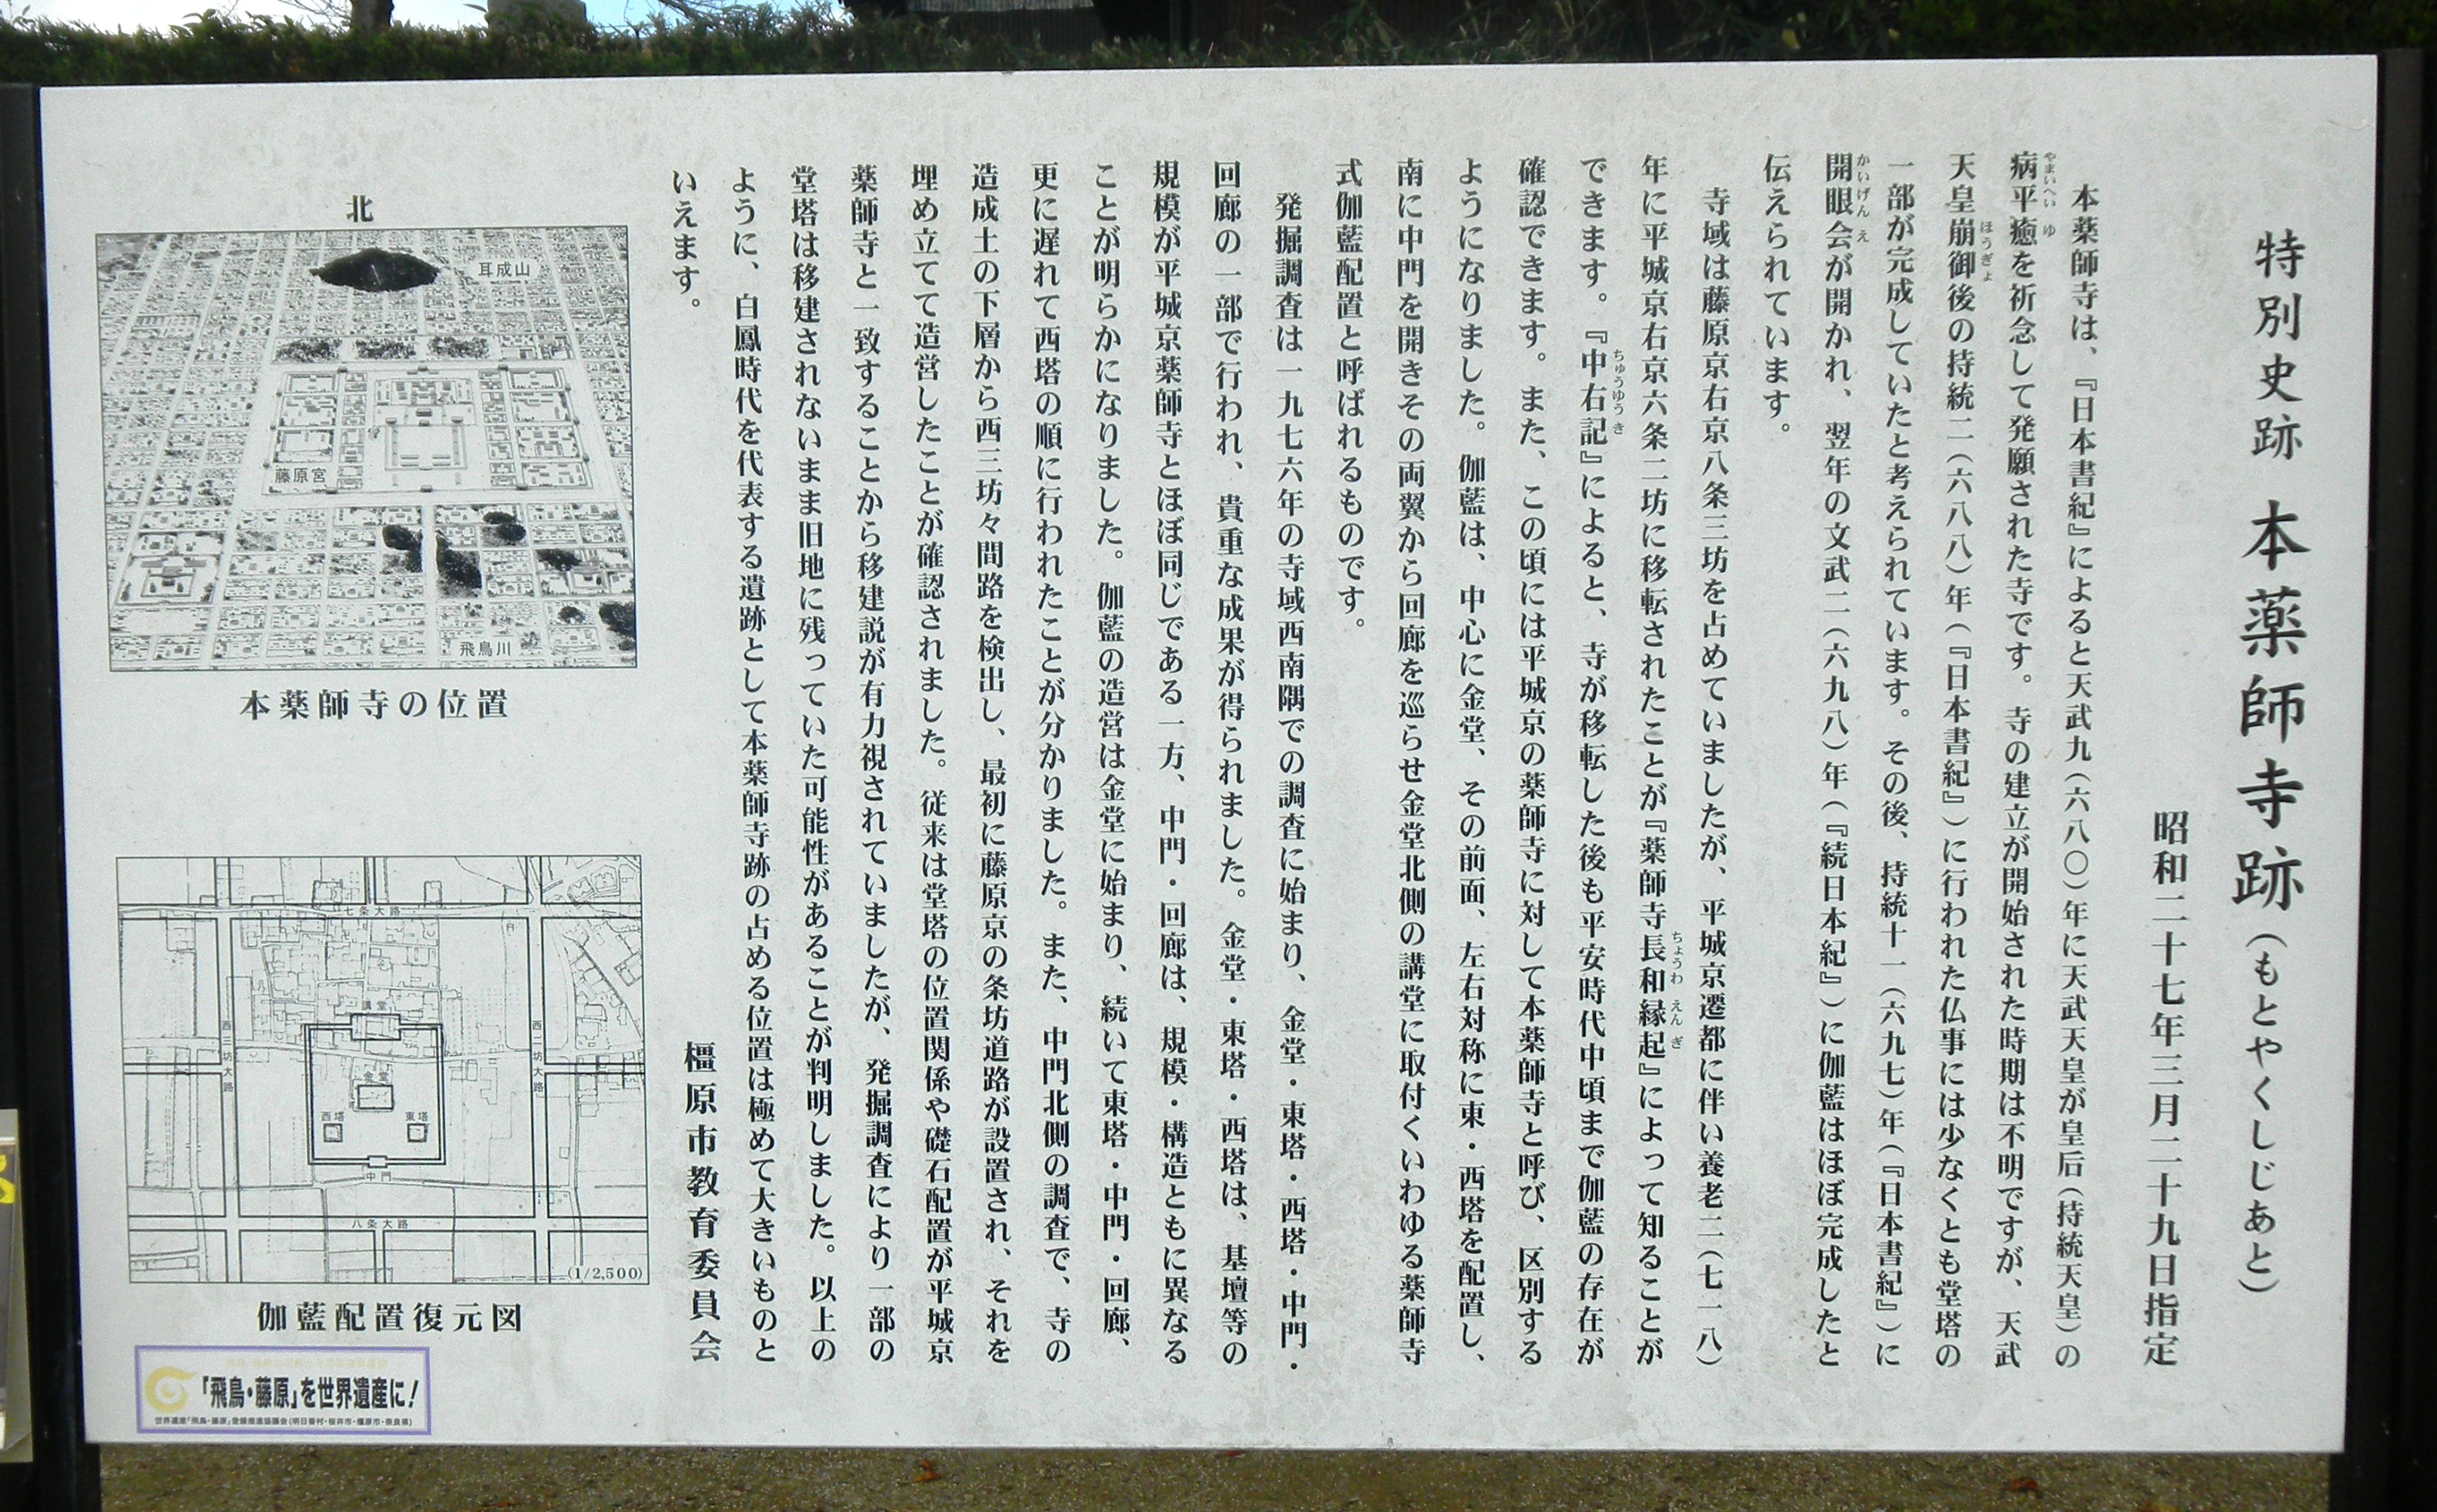 特別史跡 本薬師寺跡（もとやくしじあと）
昭和二十七年三月二十九日指定
本薬師寺は、『日本書紀』によると天武九（六八〇）年に天武天皇が皇后（持統天皇）の
病平癒を祈念して発願された寺です。寺の建立が開始された時期は不明ですが、天武
やまいへいゆ
天皇崩御後の持統二（六八八）年（『日本書紀』）に行われた仏事には少なくとも堂塔の
ほうぎょ
一部が完成していたと考えられています。その後、持統十一（六九七）年（『日本書紀』）に
開眼会が開かれ、翌年の文武二（六九八）年（『続日本紀』）に伽藍はほぼ完成したと
かいげんえ
伝えられています。
寺域は藤原京右京八条三坊を占めていましたが、平城京遷都に伴い養老二（七一八）
年に平城京右京六条二坊に移転されたことが『薬師寺長和縁起』によって知ることが
ちょうわえんぎ
できます。『中右記』によると、寺が移転した後も平安時代中頃まで伽藍の存在が
ちゅうゆうき
確認できます。また、この頃には平城京の薬師寺に対して本薬師寺と呼び、区別する
ようになりました。伽藍は、中心に金堂、その前面、左右対称に東・西塔を配置し、
南に中門を開きその両翼から回廊を巡らせ金堂北側の講堂に取付くいわゆる薬師寺
式伽藍配置と呼ばれるものです。
発掘調査は一九七六年の寺域西南隅での調査に始まり、金堂・東塔・西塔・中門・
回廊の一部で行われ、貴重な成果が得られました。金堂・東塔・西塔は、基壇等の
規模が平城京薬師寺とほぼ同じである一方、中門・回廊は、規模・構造ともに異なる
ことが明らかになりました。伽藍の造営は金堂に始まり、続いて東塔・中門・回廊、
更に遅れて西塔の順に行われたことが分かりました。また、中門北側の調査で、寺の
造成土の下層から西三坊々間路を検出し、最初に藤原京の条坊道路が設置され、それを
埋め立てて造営したことが確認されました。従来は堂塔の位置関係や礎石配置が平城京
薬師寺と一致することから移建説が有力視されていましたが、発掘調査により一部の
堂塔は移建されないまま旧地に残っていた可能性があることが判明しました。以上の
ように、白鳳時代を代表する遺跡として本薬師寺跡の占める位置は極めて大きいものと
いえます。
橿原市教育委員会
北
耳成山
藤原宮
飛鳥川
本薬師寺の位置
七条大路
講堂
西三坊大路
西二坊大路
金堂
西塔
東塔
中門
八条大路
(1/2,500)
伽藍配置復元図
「飛鳥・藤原」を世界遺産に！
世界遺産「飛鳥・藤原」登録推進協議会(明日香村・桜井市・橿原市・奈良県)